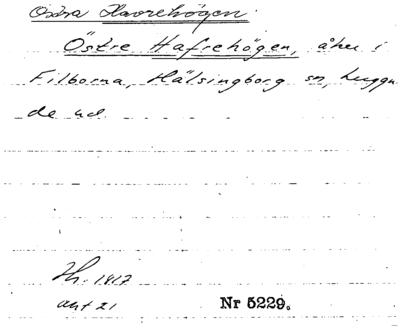 Östra Havrehögen.
Östre Hafrehögen, åker i
Filborna, Hälsingborg sn, Luggu
de hd.
Th. 1817
akt 21 Nr 5229.